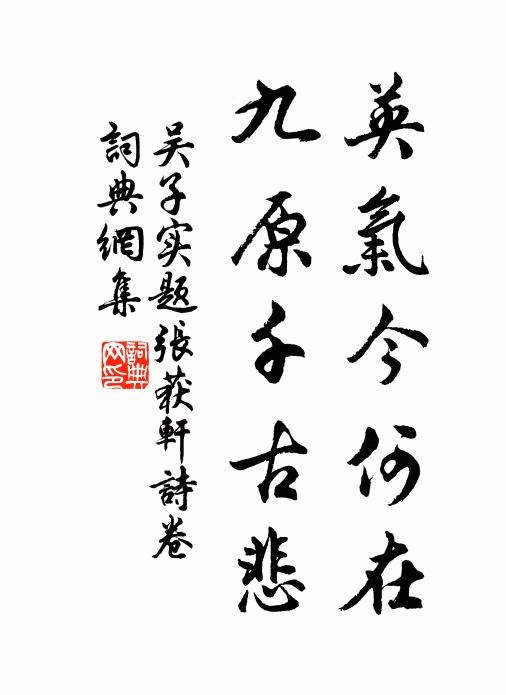 英氣今何在
九原千古悲
吳子实题張荻軒詩卷
詞典網集
詞典网印